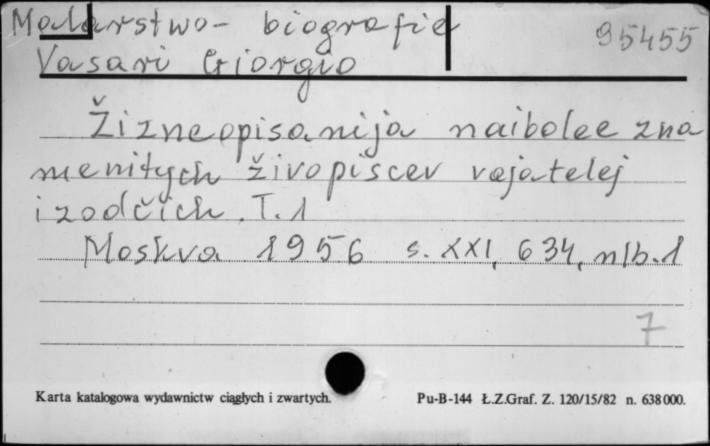 Malarstwo - biografie 95455
Vasari Giorgio
Žizneopisanija naibolee zna
menitych živopiscev vajatelej
i zodčich. T. 1
Moskva 1956 s. XXI, 634, nlb. 1
7
Karta katalogowa wydawnictw ciągłych i zwartych. Pu-B-144 Ł.Z.Graf. Z. 120/15/82 n. 638000.